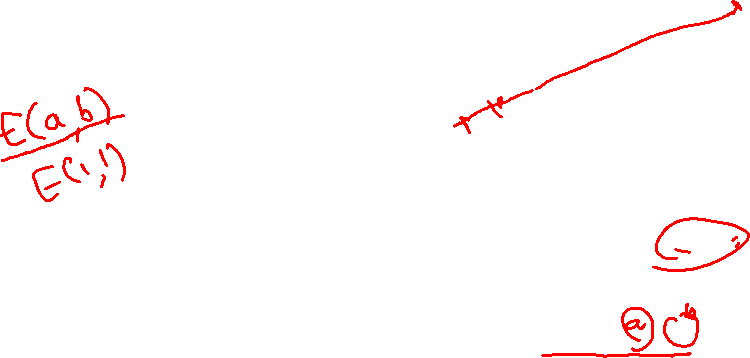 E(a,b)
E(1,1)
a b